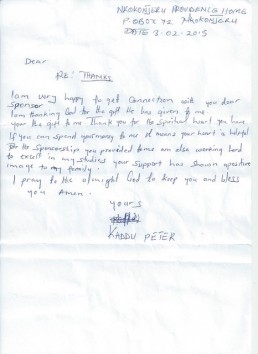 NKOKONJERU PROVIDENCE HOME
P.O BOX 72 NKOKONJERU
DATE 3.02-2015
Dear
RE: THANKS
I am very happy to get Connection with you dear
sponsor
I am thanking God for the gift He has given to me.
your the gift to me Thank you for the Spiritual heart you have
If you can spend your money to me it means your heart is helpful
the sponsorship you provided to me am also working hard
to excell in my studies your support has shown a positive
image to my family.
I pray to the almight God to keep you and bless
you Amen.
yours
KADDU PETER